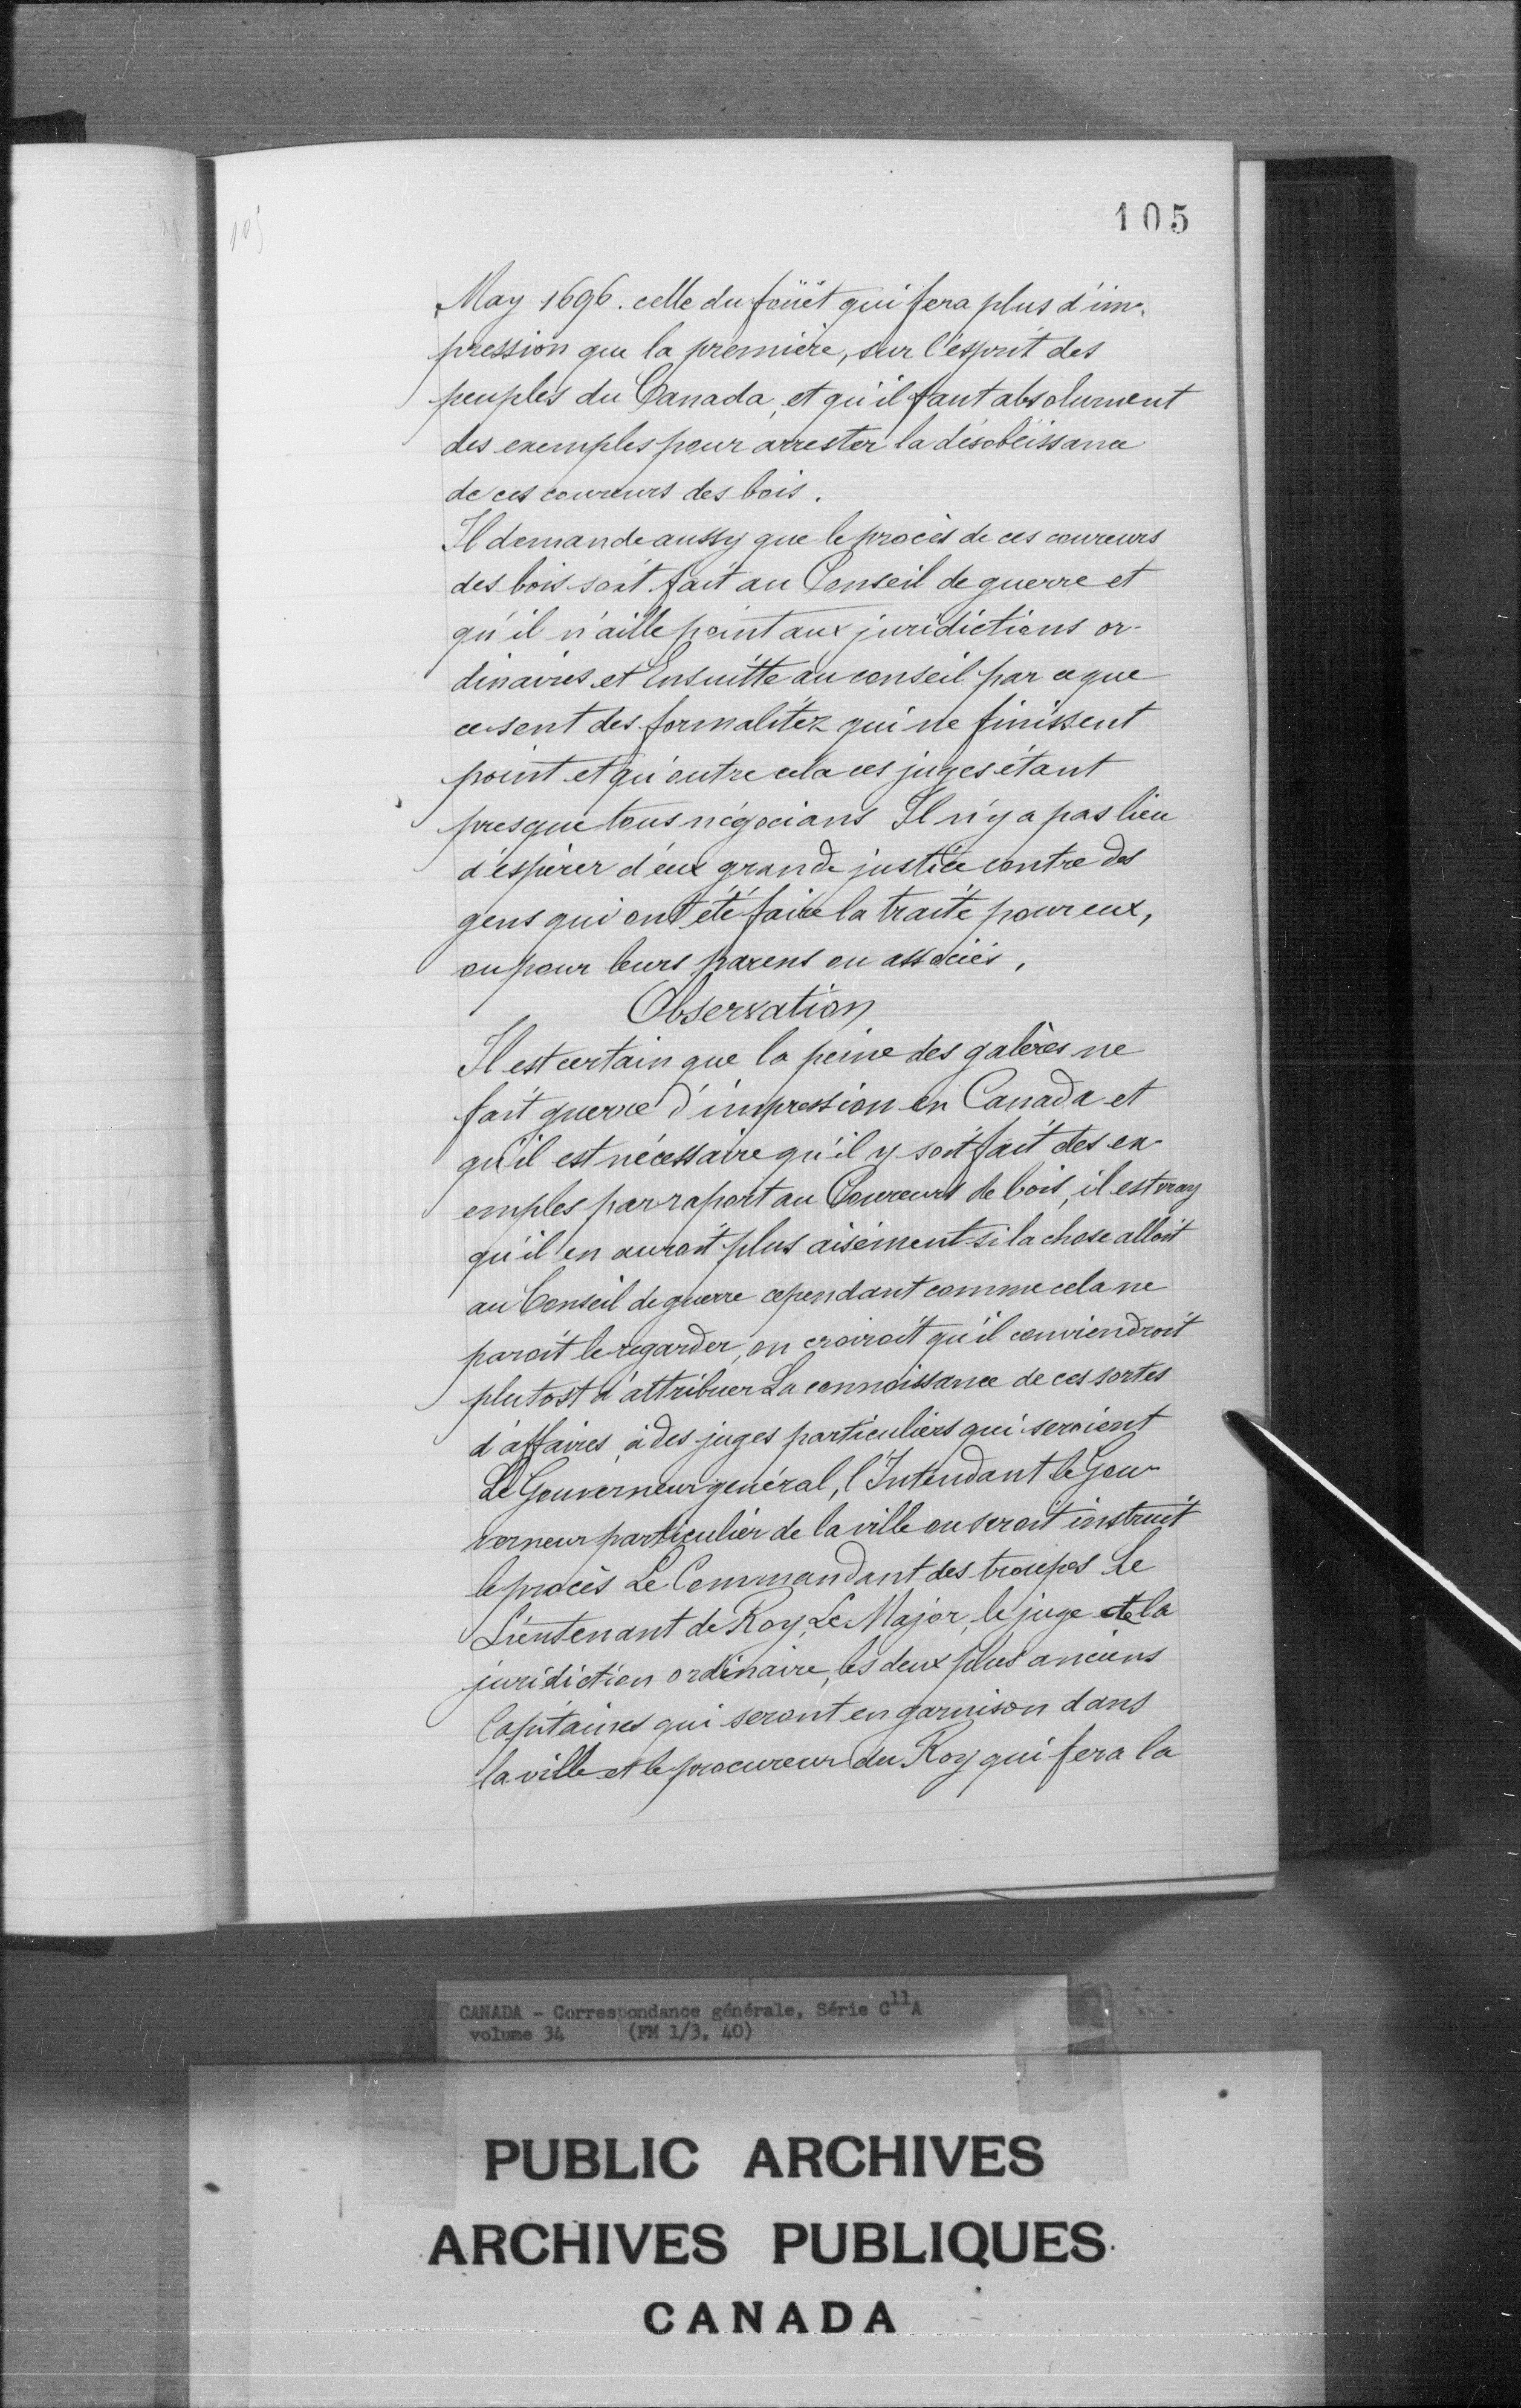 105
105
May 1696. celle du foüet qui fera plus d'im-
pression que la première, sur l'esprit des
peuples du Canada, et qu'il faut absolument
des exemples pour arrester la désobéissance
de ces coureurs des bois.
Il demande aussy que le procès de ces coureurs
des bois soit fait au Conseil de guerre et
qu'il n'aille point aux juridictions or-
dinaires et Ensuitte au conseil par ce que
ce sont des formalitéz qui ne finissent
point et qu'outre cela ces juges étant
presque tous négocians Il n'y a pas lieu
d'espérer d'eux grande justice contre des
gens qui ont été faire la traite pour eux,
ou pour leurs parens ou associés.
Observation
Il est certain que la peine des galères ne
fait guerre d'impression en Canada et
qu'il est nécessaire qu'il y soit fait des ex-
emples par raport au Coureurs de bois, il est vray
qu'il en auroit plus aisément si la chose alloit
au Conseil de guerre cependant comme cela ne
paroit le regarder, on croiroit qu'il conviendroit
plutost d'attribuer La connoissance de ces sortes
d'affaires, à des juges particuliers qui seroient
Le Gouverneur général, l'Intendant le Gou-
verneur particulier de la ville ou seroit instruit
le procès Le Commandant des troupes Le
Lieutenant de Roy, Le Major, le juge de la
juridiction ordinaire, les deux plus anciens
Capitaines qui seront en garnison dans
la ville et le procureur du Roy qui fera la
CANADA - Correspondance générale, Série C11A
volume 34 (FM 1/3, 40)
PUBLIC ARCHIVES
ARCHIVES PUBLIQUES
CANADA